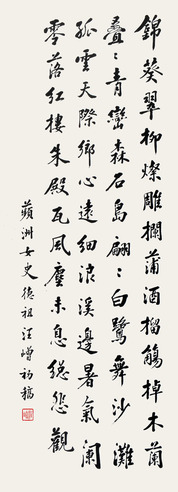 錦葵翠柳燦雕欄蒲酒榴觴棹木蘭
疊〻青巒森石島翩〻白鷺舞沙灘
孤雲天際鄉心遠細浪溪邊暑氣闌
零落紅樓朱殿瓦風塵未息總悲觀
蘋洲女史德祖汪嶒初稿